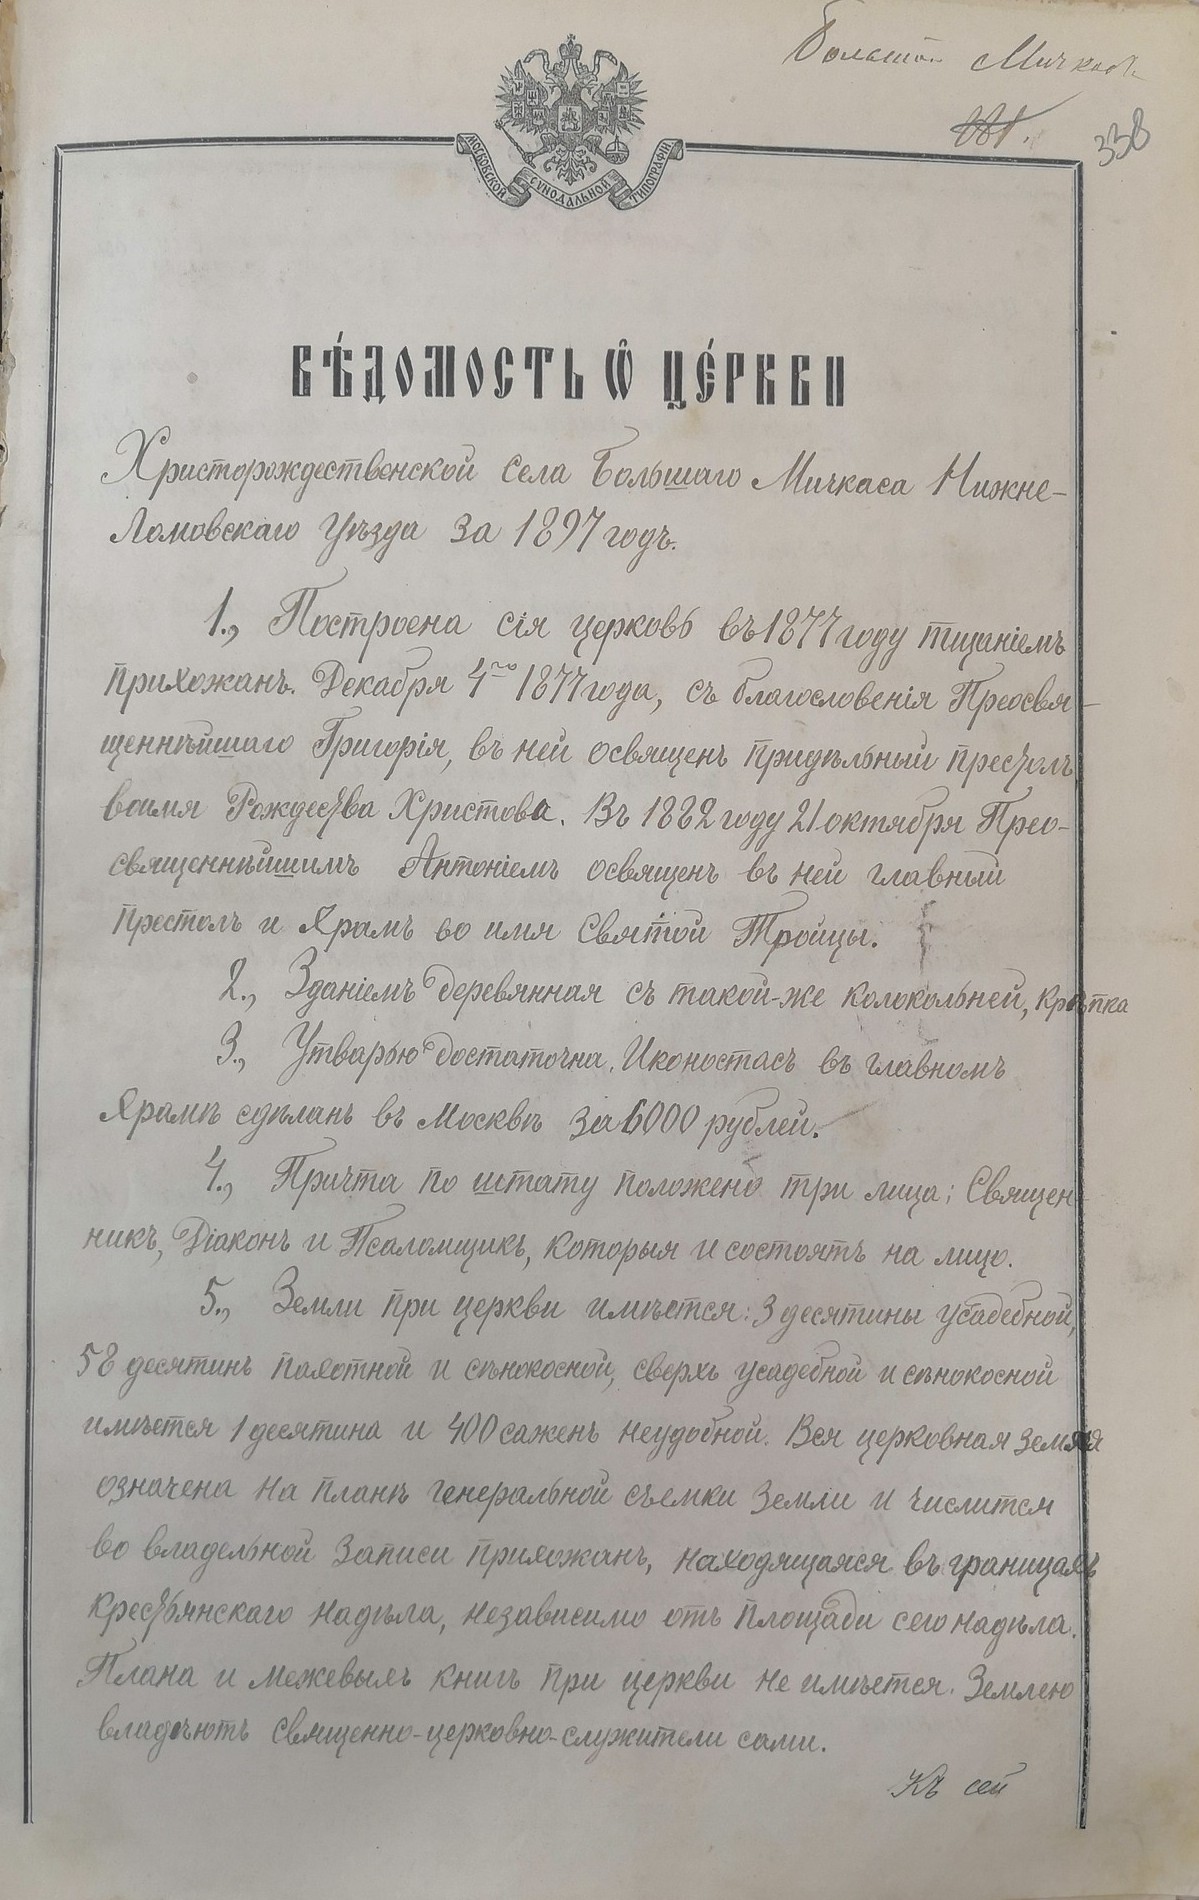 Большой Мичкасъ
338
МОСКОВСКОЙ СУНОДАЛЬНОЙ ТИПОГРАФІИ
ВѢ́ДОМОСТЬ Ѡ ЦЕ́РКВИ
Христорождественской села Большаго Мичкаса Нижне-
Ломовскаго Уѣзда за 1897 годъ.
1., Построена сія церковь въ 1877 году тщаніемъ
прихожанъ. Декабря 4го 1877 года, съ благословенія Преосвя-
щеннѣйшаго Григорія, въ ней освященъ придѣльный престолъ
воимя Рождества Христова. Въ 1882 году 21 октября Прео-
священнѣйшимъ Антоніемъ освященъ въ ней главный
престолъ и храмъ во имя Святой Тройцы.
2., Зданіемъ деревянная съ такой-же колокольней, крѣпка
3., Утварью достаточна. Иконостасъ въ главномъ
храмѣ сдѣланъ въ Москвѣ за 6000 рублей.
4., Причта по штату положено три лица: Священ-
никъ, Діаконъ и Псаломщикъ, которыя и состоятъ на лицо.
5., Земли при церкви имѣется: 3 десятины усадебной,
58 десятинъ пахотной и сѣнокосной, сверхъ усадебной и сѣнокосной
имѣется 1 десятина и 400 саженъ неудобной. Вся церковная земля
означена на планѣ генеральной съемки земли и числится
во владельной записи прихожанъ, находящаяся въ границахъ
крестьянскаго надѣла, независимо отъ площади сего надѣла.
Плана и межевыхъ книгъ при церкви не имѣется. Землею
владѣютъ священно-церковно-служители сами.
Къ сей